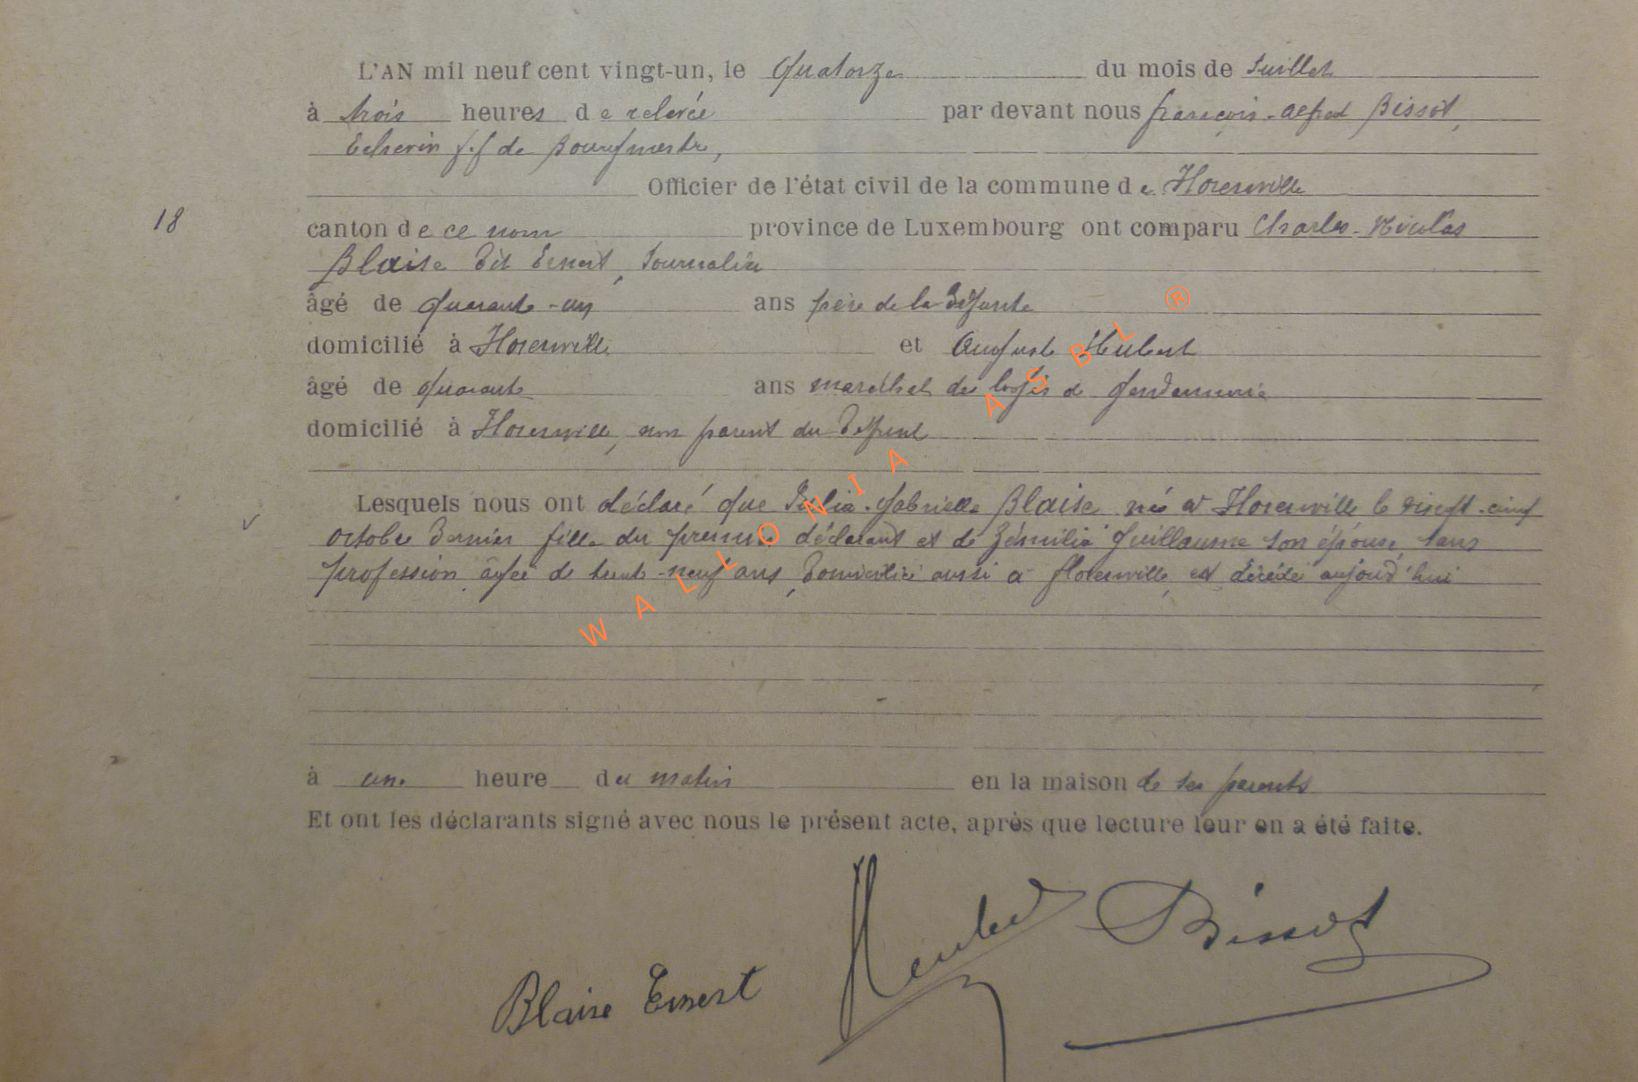 L'AN mil neuf cent vingt-un, le Quatorze du mois de Juillet
à trois heures de relevée par devant nous françois-alfred Bissot,
Echevin f.f de Bourgmestre,
Officier de l'état civil de la commune de Florenville
18 canton de ce nom province de Luxembourg ont comparu Charles-Nicolas
Blaise dit Ernest, Journalier
âgé de Quarante-un ans père de la défunte
domicilié à Florenville et August Hubert
âgé de Quarante ans maréchal des logis de gendarmerie
domicilié à Florenville, non parent du défunt
Lesquels nous ont déclaré que Julia-Gabrielle Blaise née à Florenville le vingt-cinq
octobre dernier fille du premier déclarant et de Guillaume son épouse, sans
profession, âgée de trente-neuf ans, domiciliée aussi à florenville, est décédée aujourd'hui
à une heure du matin en la maison de ses parents
Et ont les déclarants signé avec nous le présent acte, après que lecture leur en a été faite.
Bissot
Blaise Ernest
WALLONIA ASBL ®